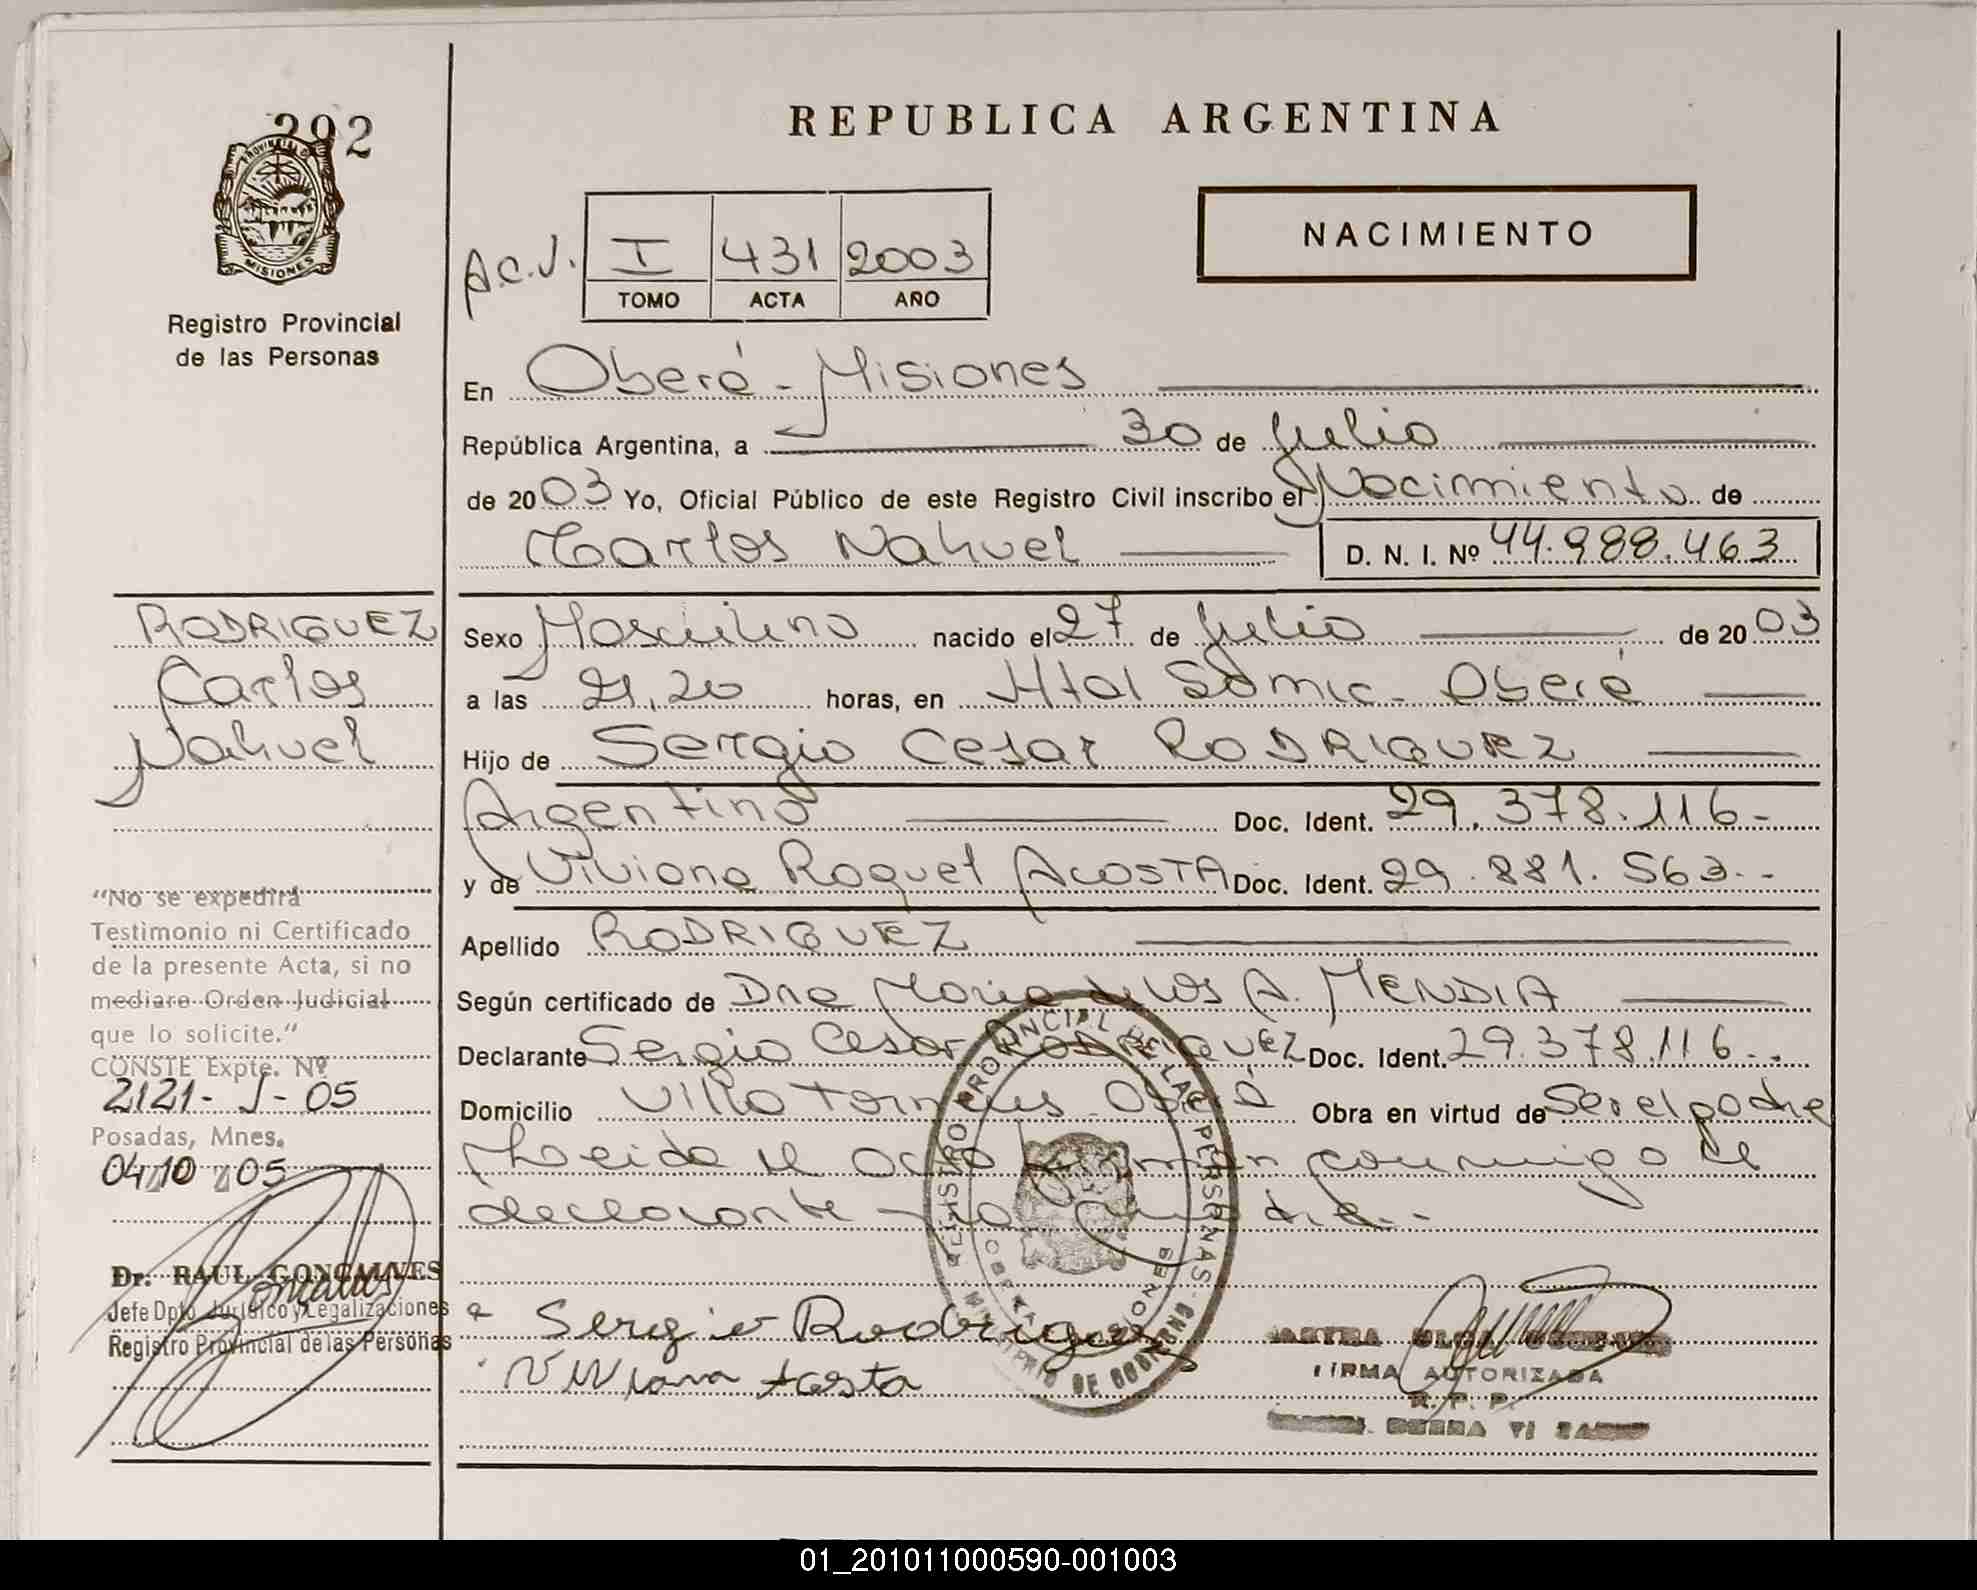 292
PROVINCIA DE
MISIONES
Registro Provincial
de las Personas
REPUBLICA ARGENTINA
A.C.J.
I 431 2003
TOMO ACTA AÑO
NACIMIENTO
En Oberá - Misiones
República Argentina, a 30 de Julio
de 2003 Yo, Oficial Público de este Registro Civil inscribo el Nacimiento de
Carlos Nahuel D. N. I. Nº 44.988.463
RODRIGUEZ
Carlos
Nahuel
Sexo Masculino nacido el 27 de Julio de 2003
a las 21,20 horas, en Htal Samic - Oberá
Hijo de Sergio Cesar RODRIGUEZ
Argentino Doc. Ident. 29.378.116-
y de Viviana Raquel ACOSTA Doc. Ident. 29.881.563.-
Apellido RODRIGUEZ
Según certificado de Dra Maria de los A. MENDIA
Declarante Sergio Cesar RODRIGUEZ Doc. Ident. 29.378.116.-
Domicilio Villa Oberá Obra en virtud de Ser el padre
Leida el Acta firman conmigo el
declarante y la madre.-
"No se expedirá
Testimonio ni Certificado
de la presente Acta, si no
mediare Orden Judicial
que lo solicite."
CONSTE Expte. Nº
2121- J - 05
Posadas, Mnes.
04/10/05
Dr. RAUL GONCALVES
Jefe Dpto. Jurídico y Legalizaciones
Registro Provincial de las Personas
REGISTRO PROVINCIAL DE LAS PERSONAS
MINISTERIO DE GOBIERNO
Sergio Rodriguez
Viviana Acosta
FIRMA AUTORIZADA
R. P. P.
01_201011000590-001003